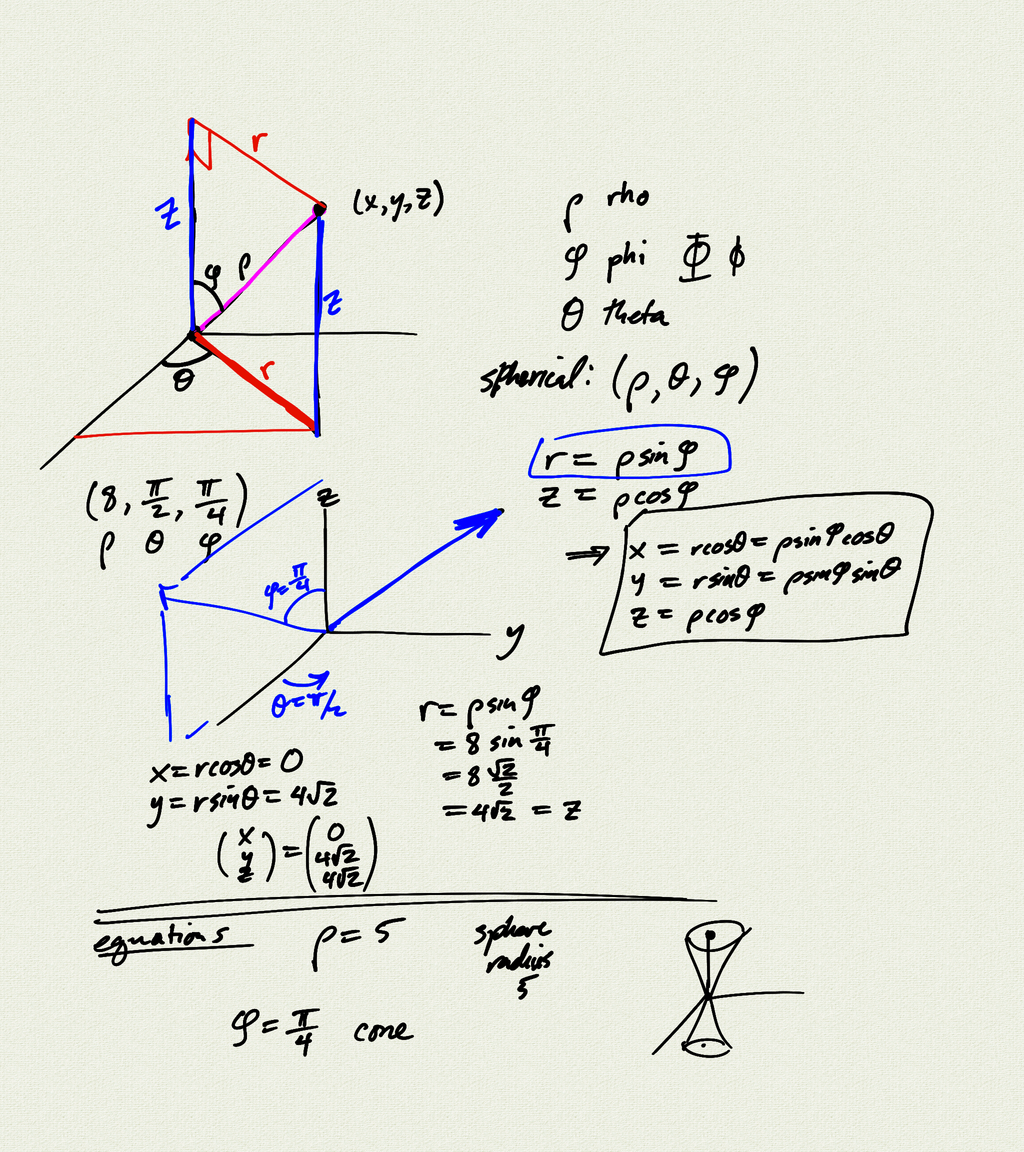 r
z
(x, y, z)
φ
ρ
z
θ
r
ρ rho
φ phi Φ ϕ
θ theta
spherical: (ρ, θ, φ)
r = ρ sin φ
z = ρ cos φ
⇒ x = r cos θ = ρ sin φ cos θ
y = r sin θ = ρ sin φ sin θ
z = ρ cos φ
(8, π/2, π/4)
ρ θ φ
z
φ = π/4
y
θ = π/2
r = ρ sin φ
= 8 sin π/4
= 8 √2/2
= 4√2 = z
x = r cos θ = 0
y = r sin θ = 4√2
(x y z) = (0 4√2 4√2)
equations
ρ = 5
sphere
radius
5
φ = π/4 cone